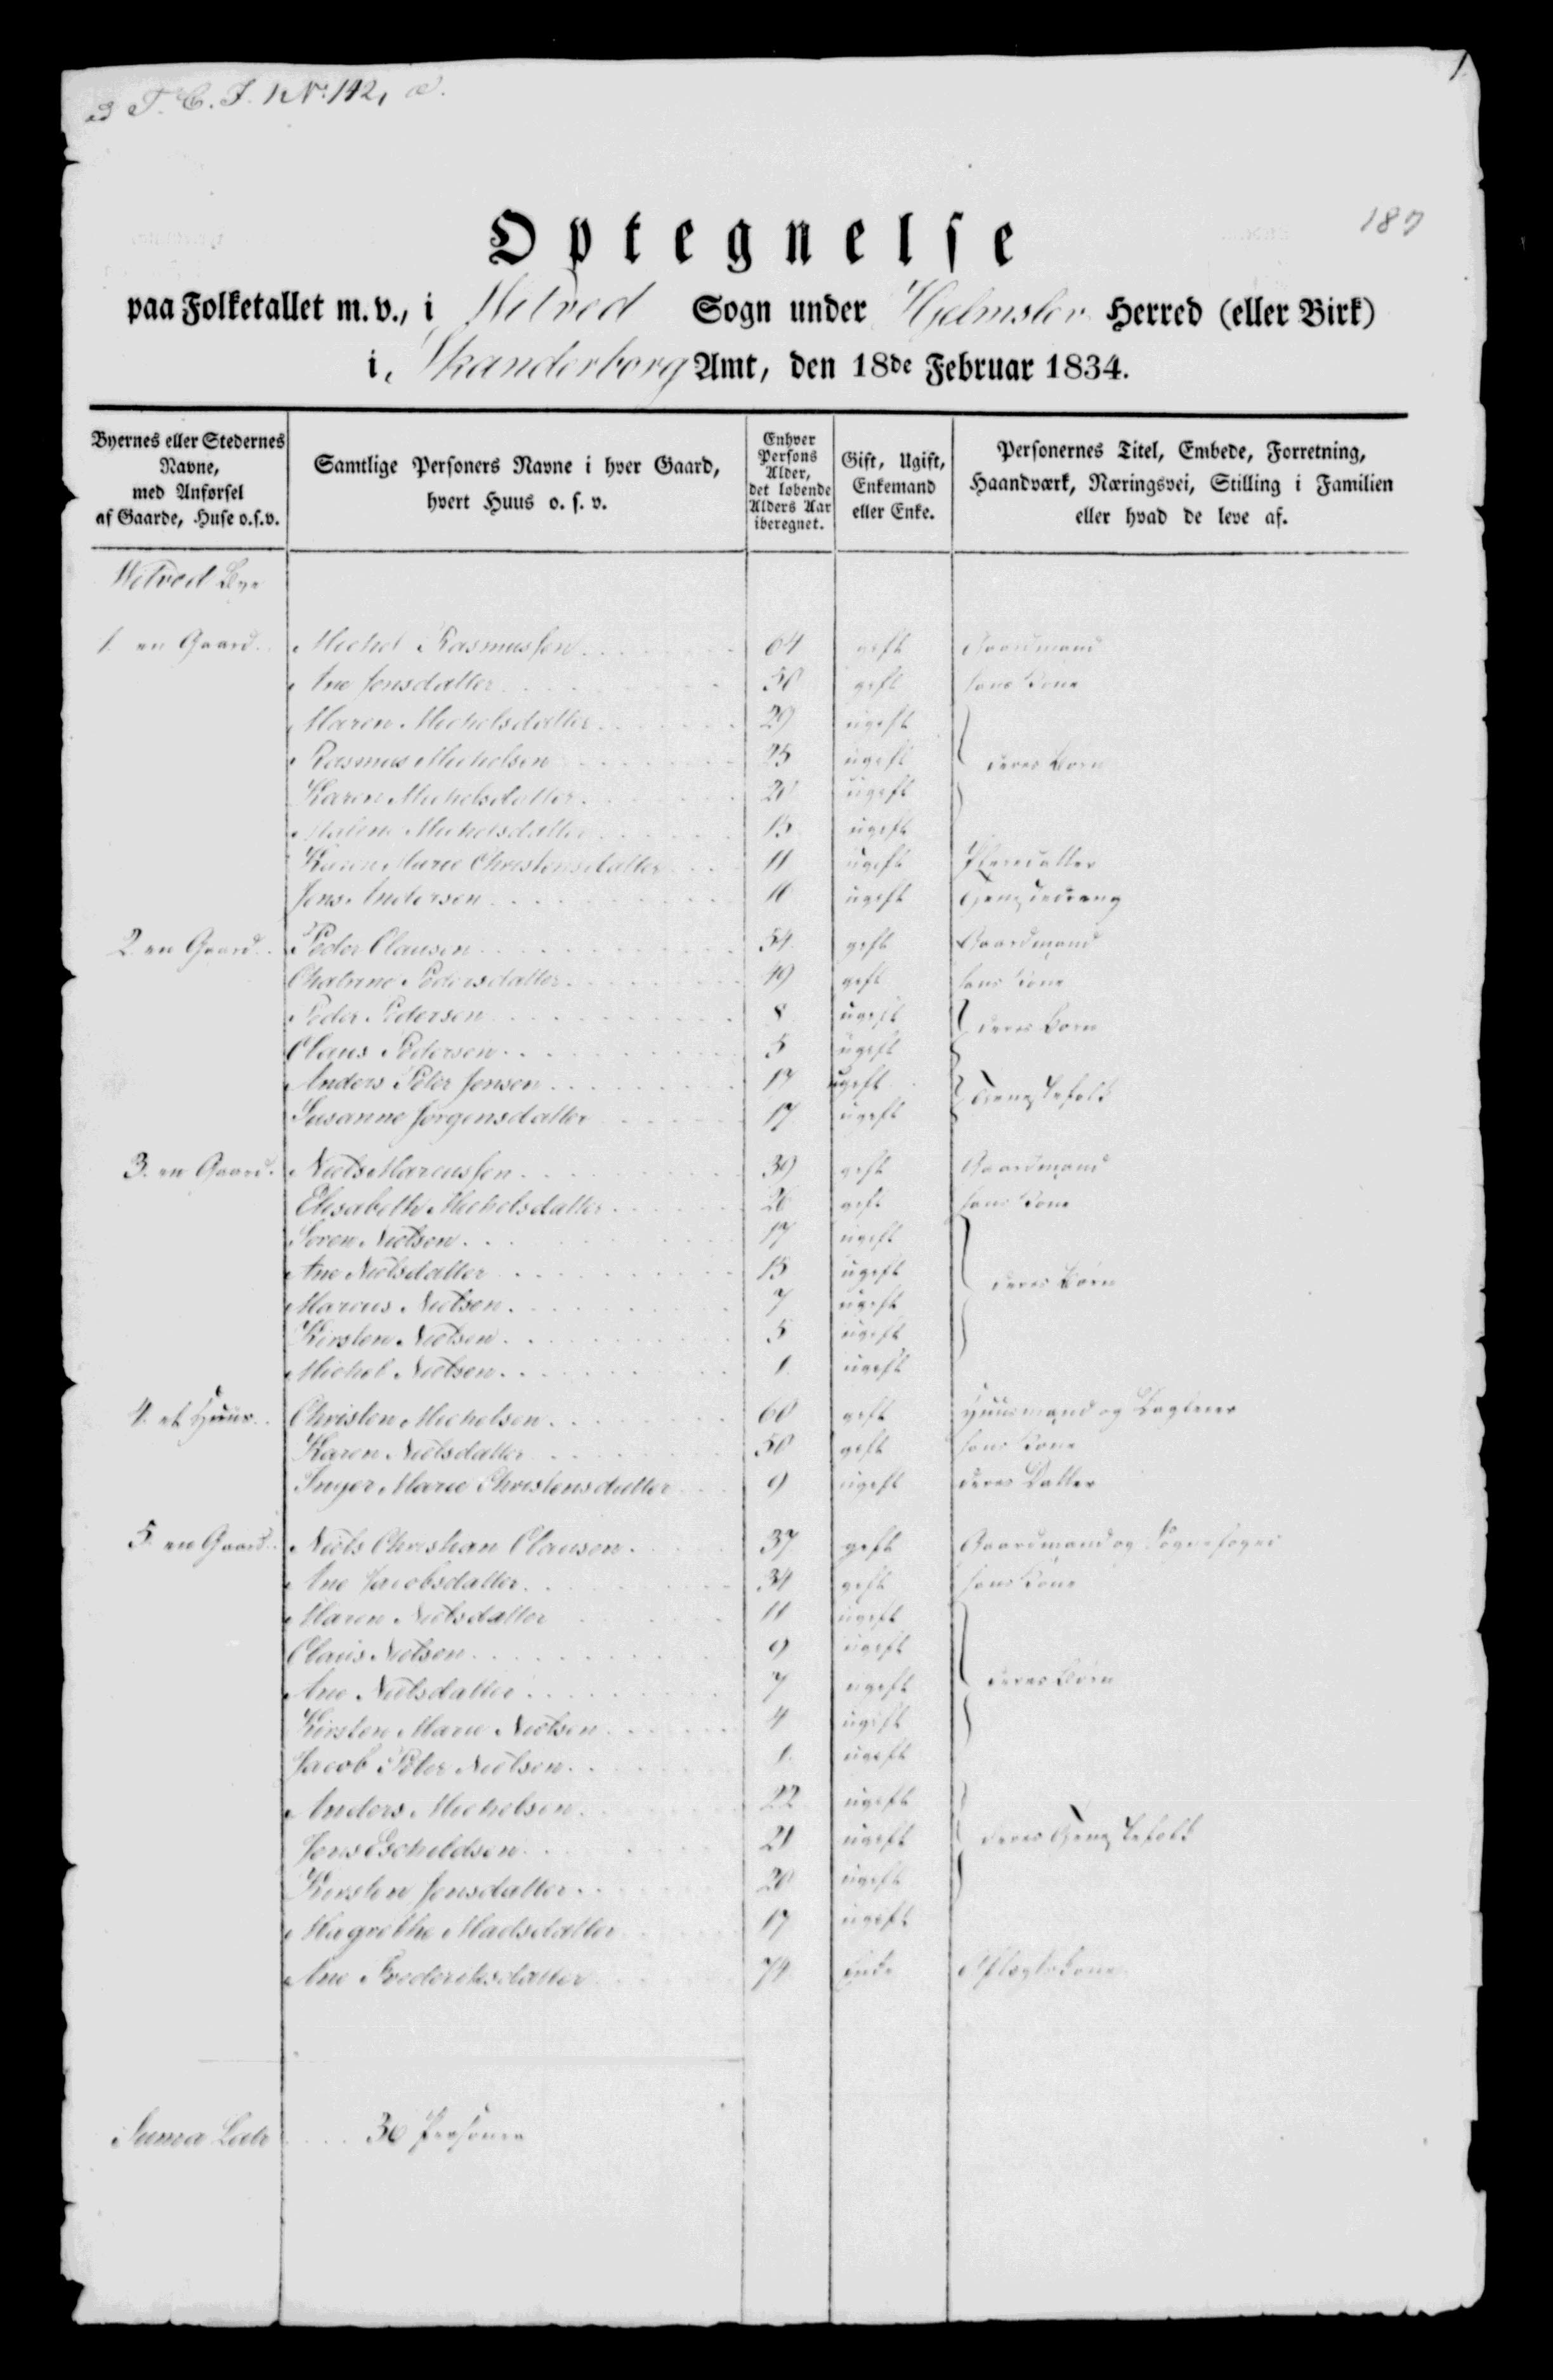 ad T. C. J. 1 No. 142,
1.
187
Optegnelse
paa Folketallet m. v., i Hvilved Sogn under Hjelmslev Herred (eller Birk)
i Skanderborg Amt, den 18de Februar 1834.
Byernes eller Stedernes Navne, med Anførsel af Gaarde, Huse o.s.v.
Samtlige Personers Navne i hver Gaard, hvert Huus o. s. v.
Enhver Persons Alder, det løbende Alders Aar iberegnet.
Gift, Ugift, Enkemand eller Enke.
Personernes Titel, Embede, Forretning, Haandværk, Næringsvei, Stilling i Familien eller hvad de leve af.
Hvilved Bye
1. en Gaard. Michel Rasmussen 64 gift Gaardmand
Ane Jensdatter 50 gift hans Kone
Maren Michelsdatter 29 ugift
Rasmus Michelsen 25 ugift deres Børn
Karen Michelsdatter 20 ugift
Malene Michelsdatter 15 ugift
Karen Marie Christensdatter 11 ugift Pleiedatter
Jens Andersen 16 ugift Tjenestedreng
2. en Gaard. Peder Clausen 54 gift Gaardmand
Chatrine Pedersdatter 49 gift hans Kone
Peder Pedersen 8 ugift deres Børn
Claus Pedersen 5 ugift
Anders Peter Jensen 17 ugift Tienestefolk
Susanne Jørgensdatter 17 ugift
3. en Gaard. Niels Marcussen 39 gift Gaardmand
Elisabeth Michelsdatter 26 gift hans Kone
Søren Nielsen 17 ugift
Ane Nielsdatter 15 ugift deres Børn
Marcus Nielsen 7 ugift
Kirsten Nielsen 5 ugift
Michel Nielsen 1 ugift
4. et Huus. Christen Michelsen 60 gift Huusmand og Dagleier
Karen Nielsdatter 50 gift hans Kone
Inger Marie Christensdatter 9 ugift deres Datter
5. en Gaard. Niels Christian Clausen 37 gift Gaardmand og Sognefoged
Ane Jacobsdatter 34 gift hans Kone
Maren Nielsdatter 11 ugift
Claus Nielsen 9 ugift
Ane Nielsdatter 7 ugift deres Børn
Kirsten Marie Nielsen 4 ugift
Jacob Peter Nielsen 1 ugift
Anders Michelsen 22 ugift
Jens Escheldsen 21 ugift deres Tienestefolk
Kirsten Jensdatter 20 ugift
Magrethe Madsdatter 17 ugift
Ane Frederiksdatter 74 Enke Aftægtskone
Suma Latr 36 Personer